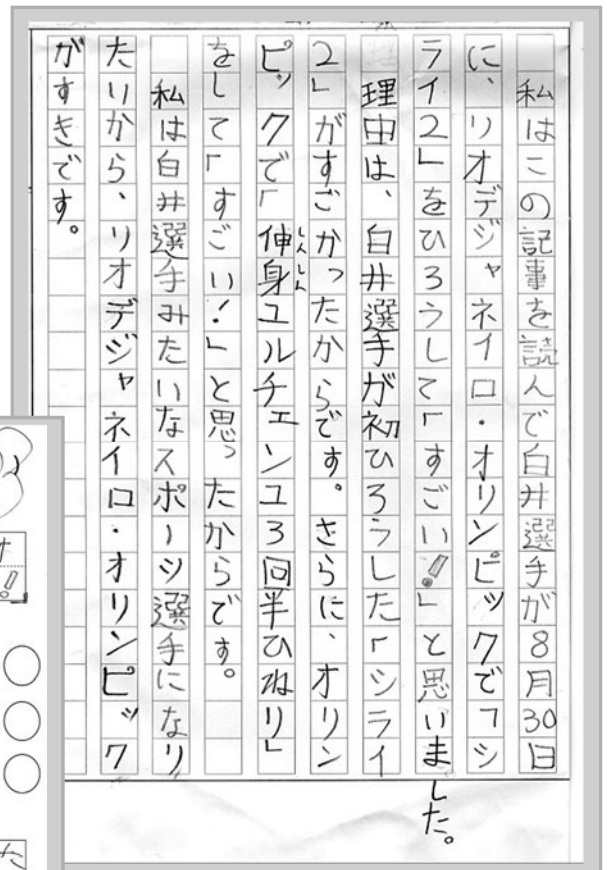 私はこの記事を読んで白井選手が8月30日
に、リオデジャネイロ・オリンピックで「シ
ライ2」をひろうして「すごい!」と思いました。
理由は、白井選手が初ひろうした「シライ
2」がすごかったからです。さらに、オリン
ピックで「伸身ユルチェンコ3回半ひねり」
しんしん
をして「すごい!」と思ったからです。
私は白井選手みたいなスポーツ選手になり
たいから、リオデジャネイロ・オリンピック
がすきです。